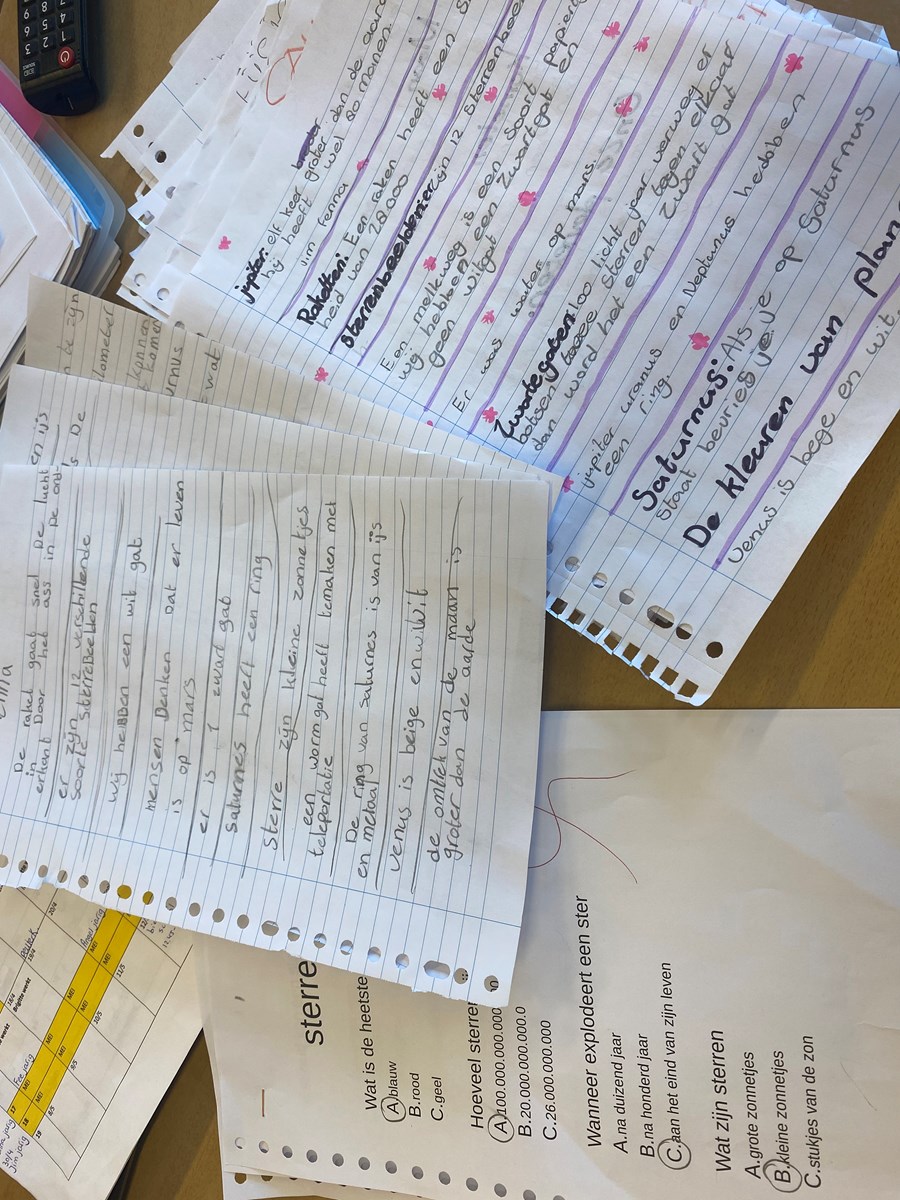 jupiter: elf keer groter dan de aard
hij heeft wel 20 manen.
Jim Fenna
Raketten: Een raken heeft een s
heid van 28000
sterrenbeelden: er zijn 12 sterrenbee
Een melkweg is een soort papiert
wij hebben geen witgat een zwart gat en
Er was water op mars.
Zwarte gaten: 100 licht jaar verweg er
botsen twee sterren tegen elkaar
dan word het een zwart gat
jupiter uranus en Neptunus hebben
een ring.
Saturnus: Als je op Saturnus
staat bevries je
De kleuren van plane
venus is bege en wit.
De raket gaat snel
in De lucht en ijs
erkant Door het ass in De ont
er zijn 12 verschillende
soorte sterreBeelden
wij heBBen een wit gat
mensen Denken Dat er leven
is op mars
er is 1 zwart gat
saturnes heeft een ring
sterre zijn kleine zonnetjes
een worm gat heeft temaken met
teleportatie
De ring van saturnes is van ijs
en metaal
venus is beige en wit
de omtrek van de maan is
groter dan de aarde
sterre
Wat is de heetste
A.blauw
B.rood
C.geel
Hoeveel sterre
A.100.000.000.000
B.20.000.000.000.0
C.26.000.000.000
Wanneer explodeert een ster
A.na duizend jaar
B.na honderd jaar
C.aan het eind van zijn leven
Wat zijn sterren
A.grote zonnetjes
B.kleine zonnetjes
C.stukjes van de zon